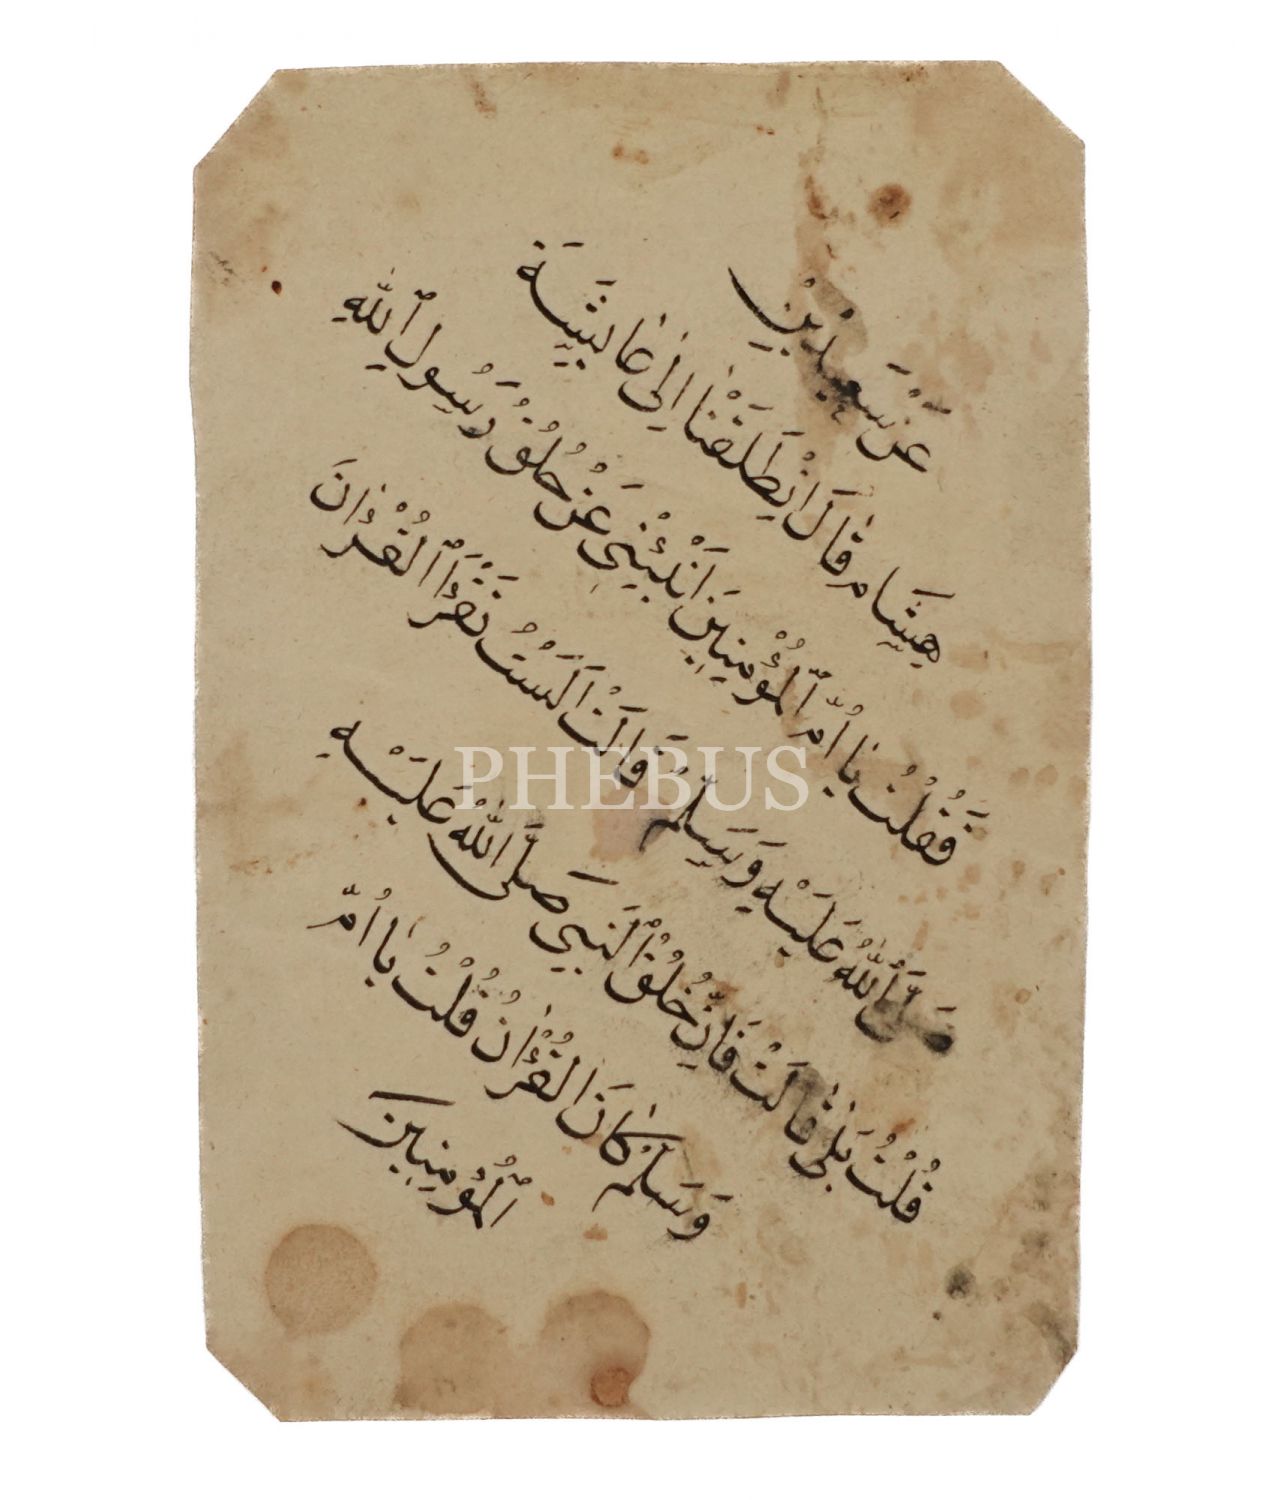 عَنْ سَعِيدِ بْنِ
هِشَامٍ قَالَ انْطَلَقْنَا اِلٰى عَايِشَةَ
فَقُلْتُ يَا اُمَّ ٱلْمُؤْمِنِينَ اَنْبِئِنِى عَنْ خُلُقِ رَسُولِ ٱللّٰهِ
صَلَّى ٱللّٰهُ عَلَيْهِ وَسَلَّمَ قَالَتْ اَلَسْتَ تَقْرَأُ ٱلْقُرْاٰنَ
قُلْتُ بَلٰى قَالَتْ فَاِنَّ خُلُقَ ٱلنَّبِىِّ صَلَّى ٱللّٰهُ عَلَيْهِ
وَسَلَّمَ كَانَ الْقُرْاٰنُ قُلْتُ يَا اُمَّ
ٱلْمُؤْمِنِينَ
PHEBUS